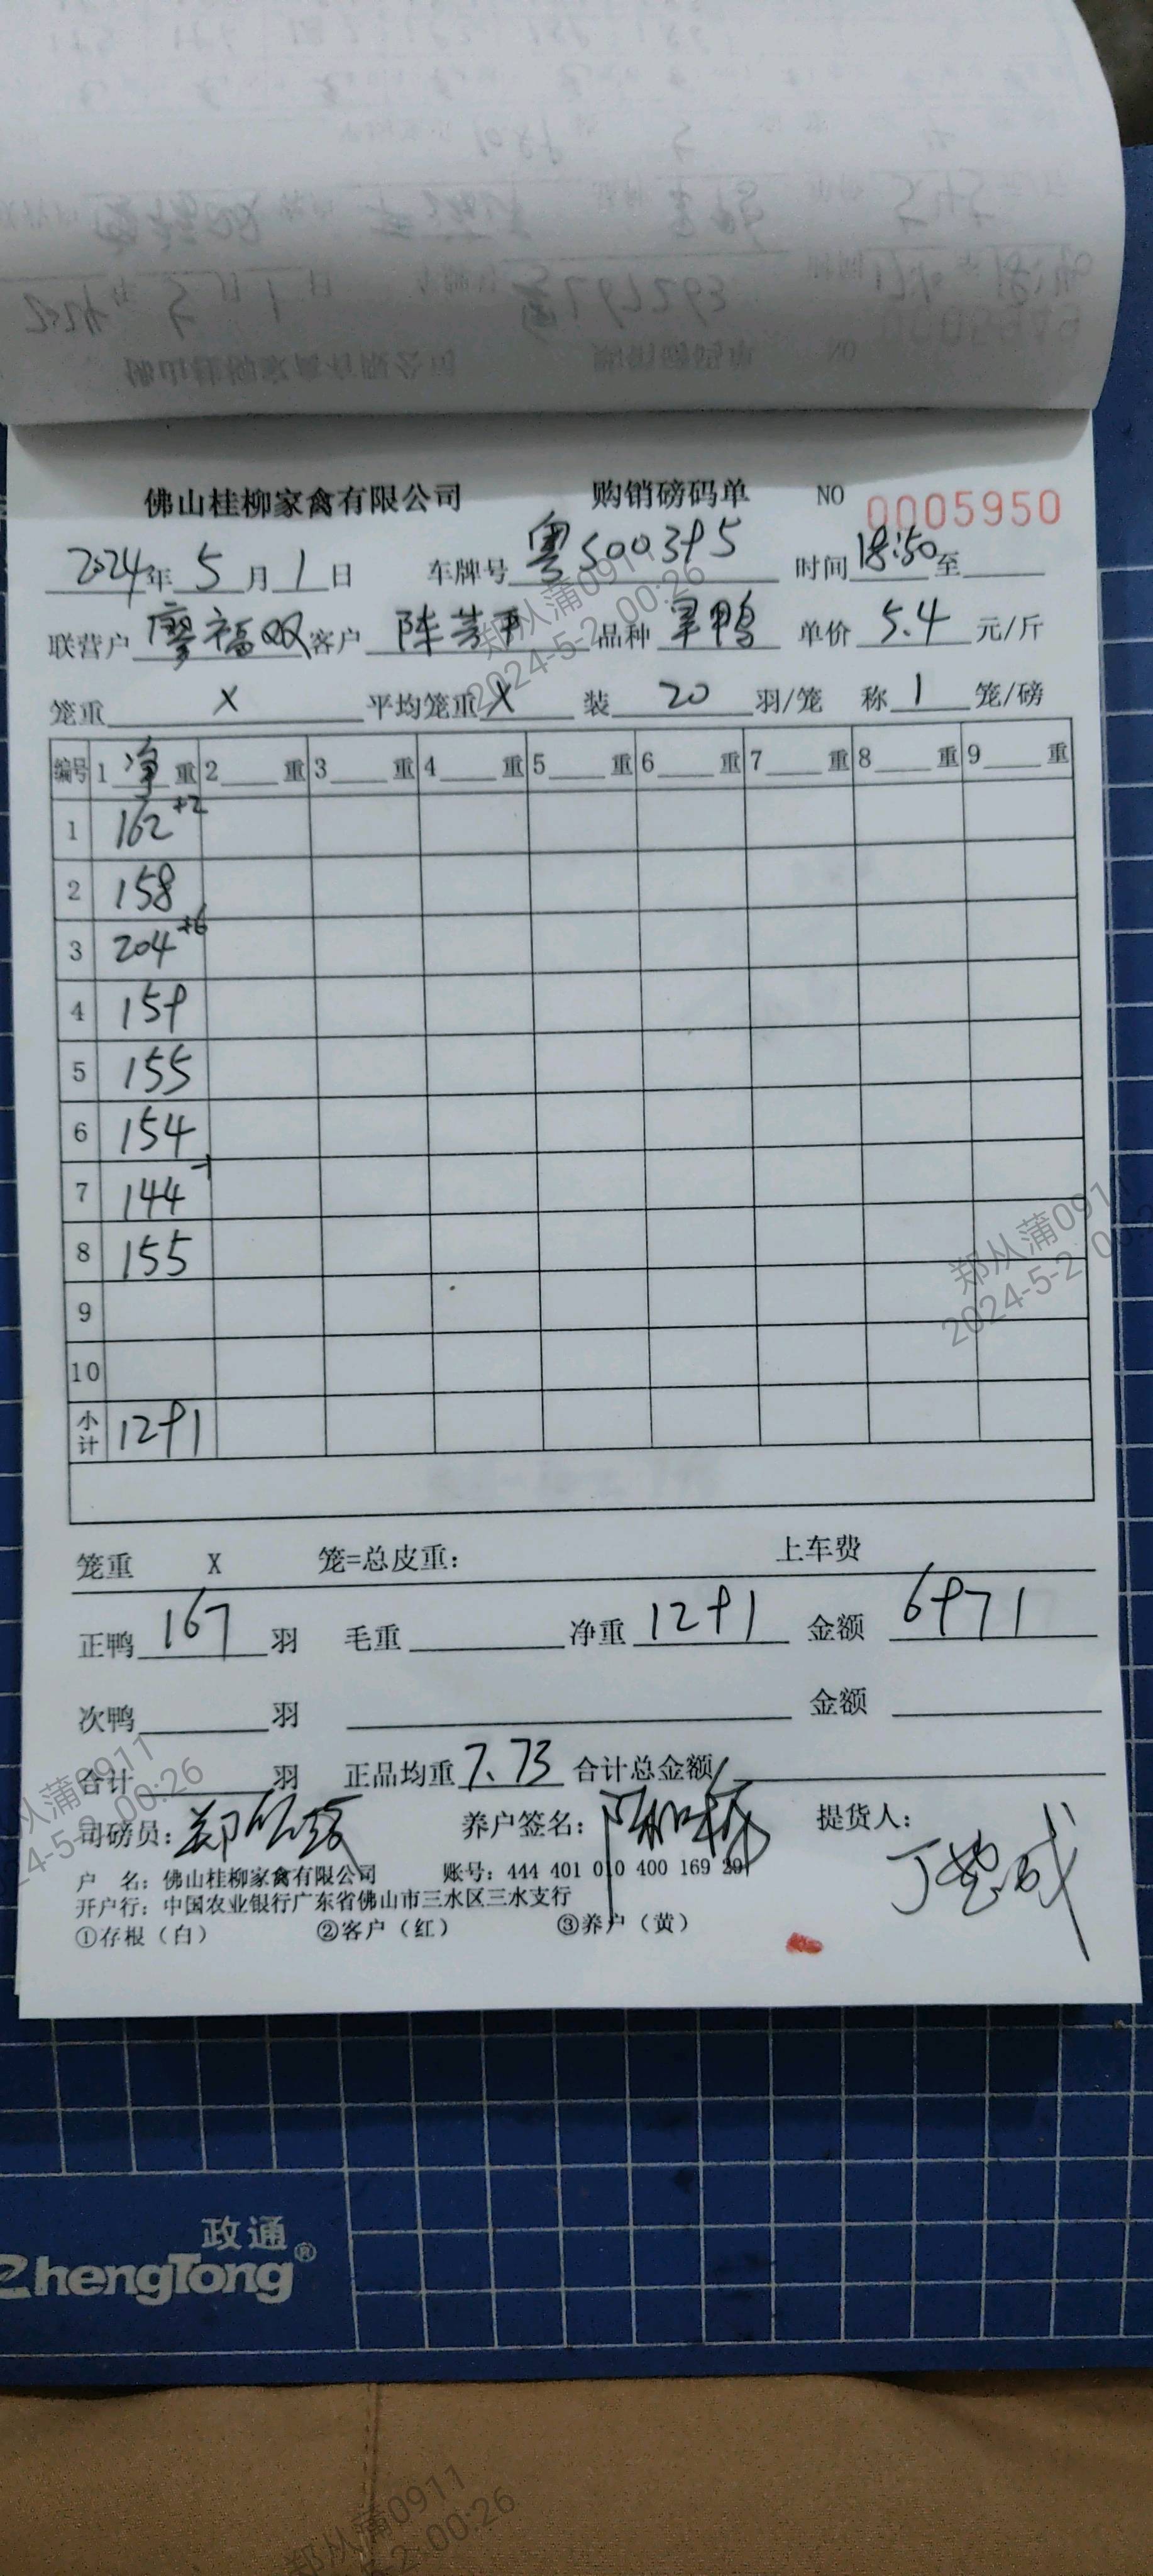 佛山桂柳家禽有限公司 购销磅码单 NO 0005950
2024年 5 月 1 日 车牌号 粤S00395 时间 18:50 至
联营户 廖福双 客户 陈 品种 旱鸭 单价 5.4 元/斤
笼重 X 平均笼重 X 装 20 羽/笼 称 1 笼/磅
编号 1 净 重 2 重 3 重 4 重 5 重 6 重 7 重 8 重 9 重
1 162 +2
2 158
3 204 +6
4 159
5 155
6 154
7 144 -1
8 155
9
10
小计 1291
笼重 X 笼=总皮重: 上车费
正鸭 167 羽 毛重 净重 1291 金额 6971
次鸭 羽 金额
合计 羽 正品均重 7.73 合计总金额
司磅员: 郑 养户签名: 提货人:
户 名: 佛山桂柳家禽有限公司 账号: 444 401 010 400 169 291
开户行: 中国农业银行广东省佛山市三水区三水支行
①存根(白) ②客户(红) ③养户(黄)
郑从蒲0911
2024-5-2 00:26
郑从蒲0911
2024-5-2 00:
从蒲0911
4-5-2 00:26
政通®
ZhengTong
郑从蒲0911
-2 00:26